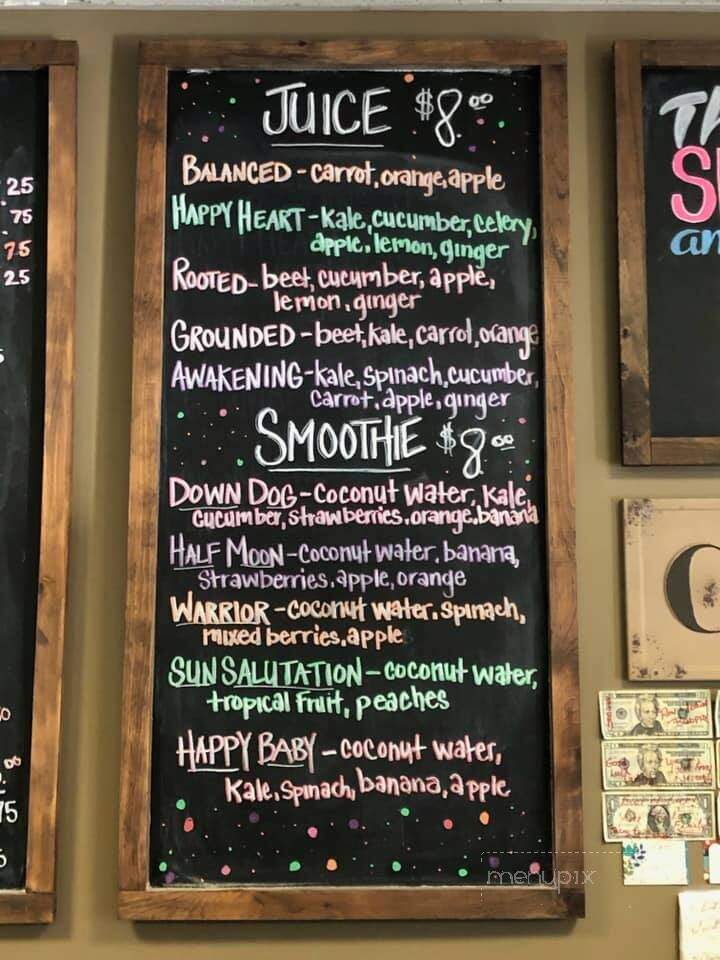 JUICE $8.00
BALANCED - carrot, orange, apple
HAPPY HEART - kale, cucumber, celery,
apple, lemon, ginger
ROOTED - beet, cucumber, apple,
lemon, ginger
GROUNDED - beet, kale, carrot, orange
AWAKENING - kale, spinach, cucumber,
carrot, apple, ginger
SMOOTHIE $8.00
DOWN DOG - coconut water, kale,
cucumber, strawberries, orange, banana
HALF MOON - coconut water, banana,
strawberries, apple, orange
WARRIOR - coconut water, spinach,
mixed berries, apple
SUN SALUTATION - coconut water,
tropical fruit, peaches
HAPPY BABY - coconut water,
kale, spinach, banana, apple
25
75
75
25
75
menupix